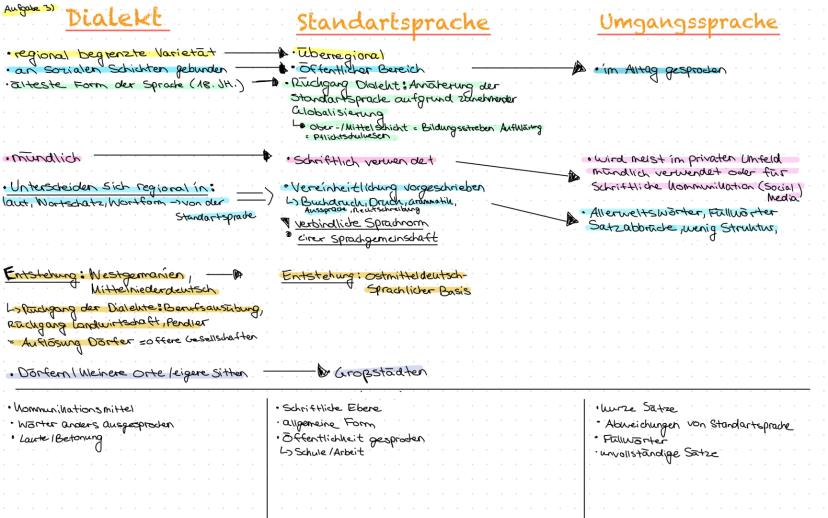 Aufgabe 3)
Dialekt
Standartsprache
Umgangssprache
• regional begrenzte Varietät
• an sozialen Schichten gebunden
• älteste Form der Sprache (18. JH.)
• überregional
• Öffentlicher Bereich
• Rückgang Dialekt: Annäterung der
Standartsprache aufgrund zunehmender
Globalisierung
↳ Ober-/Mittelschicht = Bildungsstreben Aufklärung
= Pflichtschulwesen
• im Alltag gesprochen
• mündlich
• Schriftlich verwendet
• Wird meist im privaten Umfeld
mündlich verwendet oder für
Schriftliche Kommunikation (Social
Media)
• Unterscheiden sich regional in:
Laut, Wortschatz, Wortform → von der
Standartsprache
• Vereinheitlichung vorgeschrieben
↳ Buchdruck, Druck, Grammatik,
Aussprache, Rechtschreibung
verbindliche Sprachnorm
einer Sprachgemeinschaft
• Allerweltswörter, Füllwörter
Satzabbrüche, wenig Struktur,
Entstehung: Westgermanien,
Mittelniederdeutsch
↳ Rückgang der Dialekte: Berufsausübung,
Rückgang Landwirtschaft, Pendler
= Auflösung Dörfer = offene Gesellschaften
Entstehung: ostmitteldeutsch-
Sprachlicher Basis
• Dörfern / kleinere Orte / eigene Sitten
• Großstädten
• Kommunikationsmittel
• Wörter anders ausgesprochen
• Laute / Betonung
• Schriftliche Ebene
• allgemeine Form
• Öffentlichkeit gesprochen
↳ Schule / Arbeit
• kurze Sätze
• Abweichungen von Standartsprache
• Füllwörter
• unvollständige Sätze